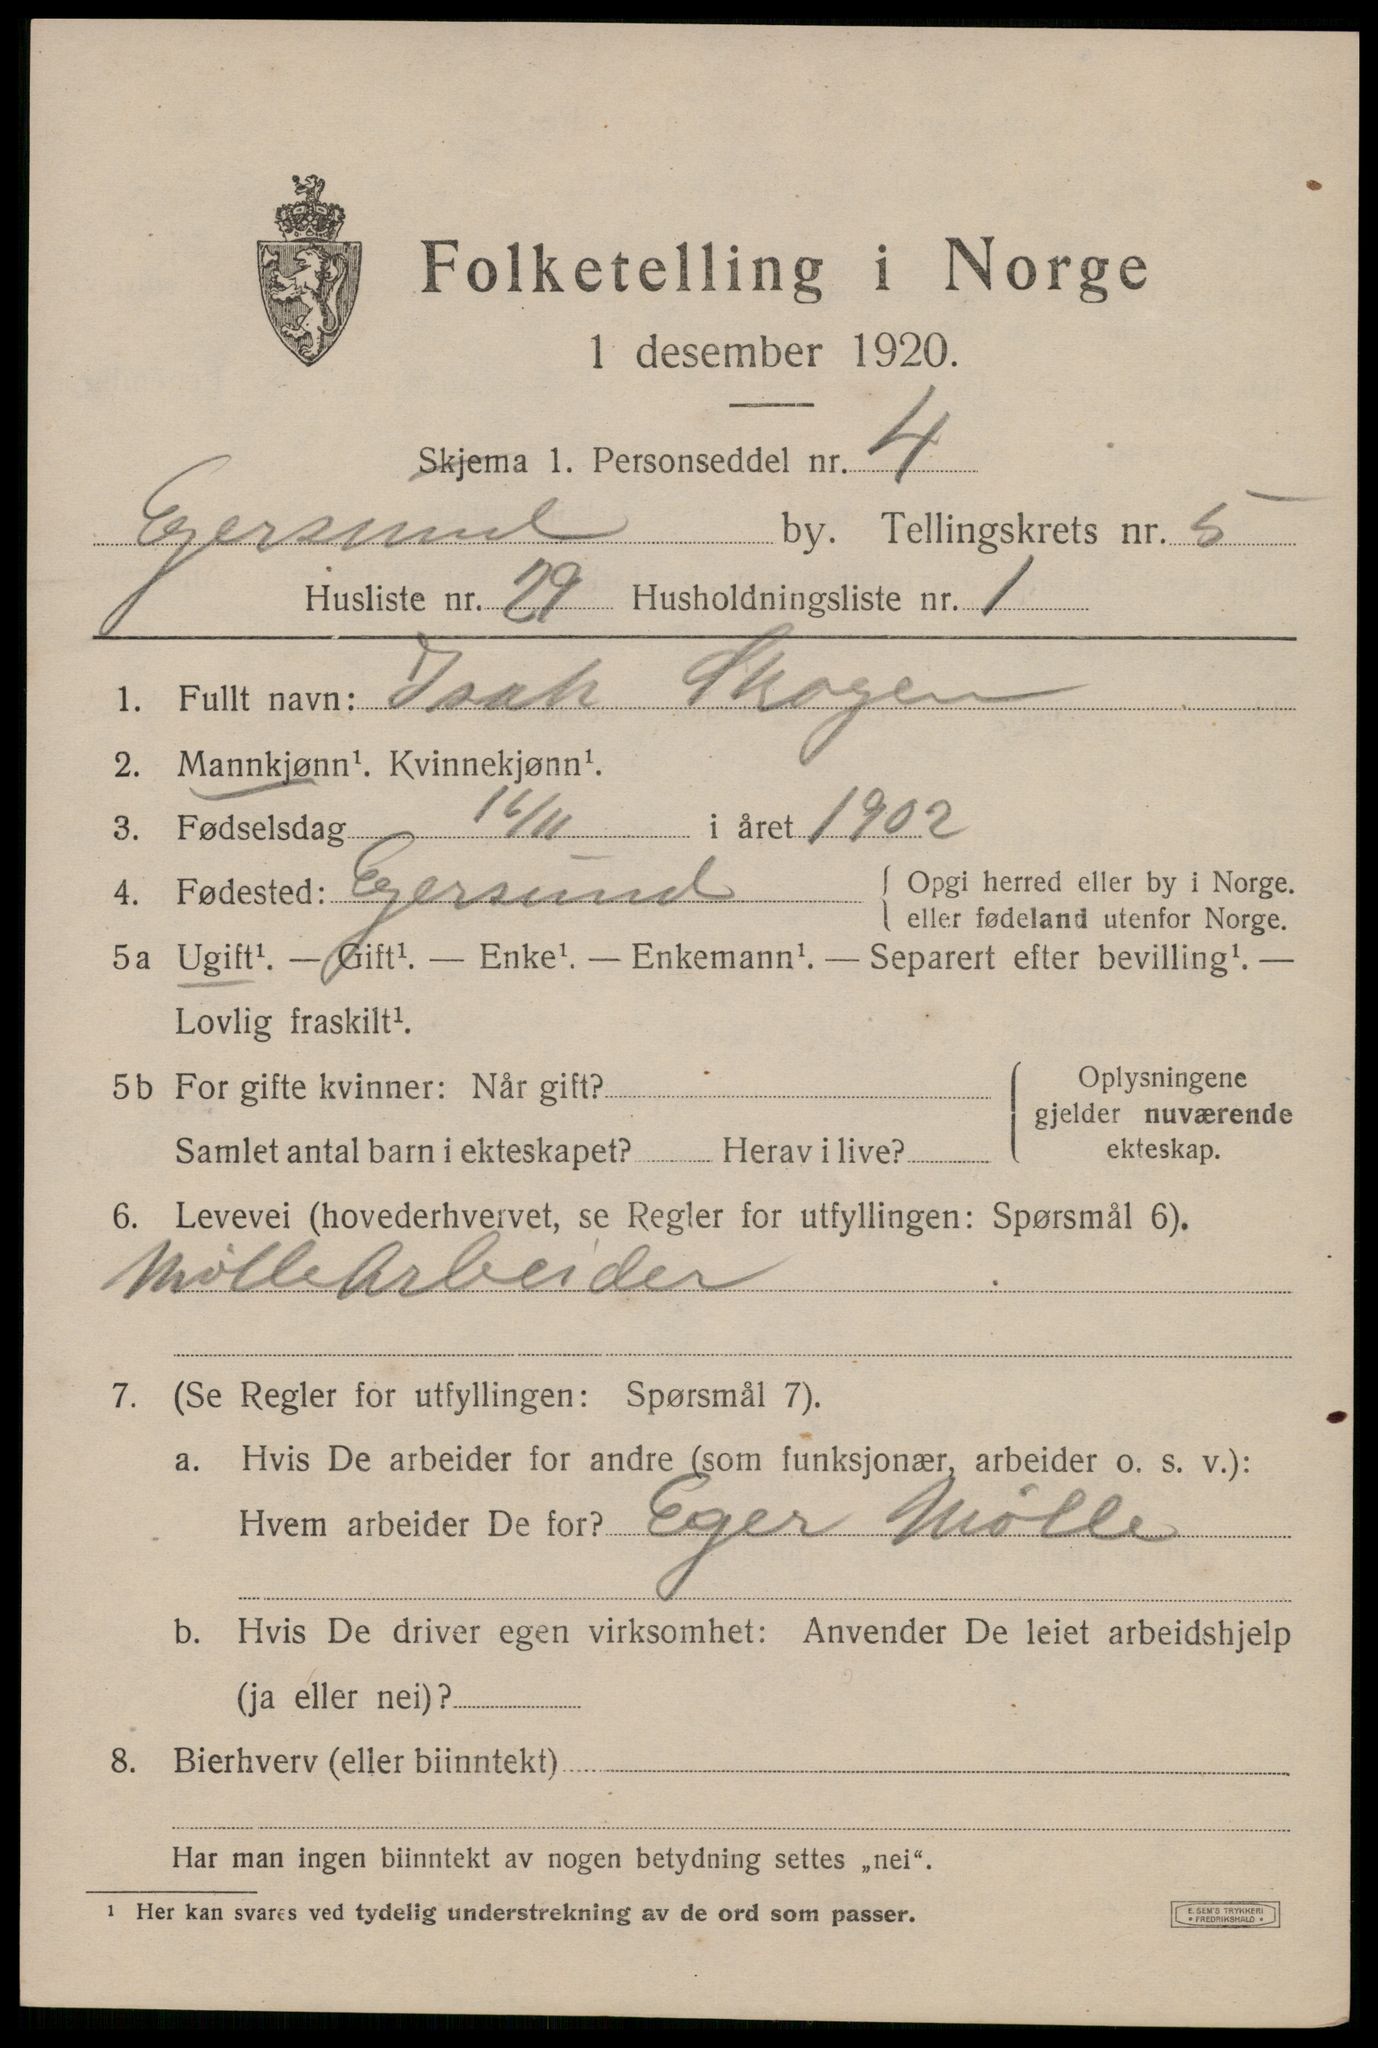 Folketelling i Norge
1 desember 1920.
Skjema 1. Personseddel nr. 4
Egersund by. Tellingskrets nr. 5
Husliste nr. 29 Husholdningsliste nr. 1
1. Fullt navn: Isak Skogen
2. Mannkjønn¹. Kvinnekjønn¹.
3. Fødselsdag 16/11 i året 1902
4. Fødested: Egersund { Opgi herred eller by i Norge.
eller fødeland utenfor Norge.
5a Ugift¹. — Gift¹. — Enke¹. — Enkemann¹. — Separert efter bevilling¹. —
Lovlig fraskilt¹.
5b For gifte kvinner: Når gift? Oplysningene
gjelder nuværende
Samlet antal barn i ekteskapet? Herav i live? ekteskap.
6. Levevei (hovederhvervet, se Regler for utfyllingen: Spørsmål 6).
Mølle Arbeider
7. (Se Regler for utfyllingen: Spørsmål 7).
a. Hvis De arbeider for andre (som funksjonær, arbeider o. s. v.):
Hvem arbeider De for? Eger Mølle
b. Hvis De driver egen virksomhet: Anvender De leiet arbeidshjelp
(ja eller nei)?
8. Bierhverv (eller biinntekt)
Har man ingen biinntekt av nogen betydning settes „nei“.
¹ Her kan svares ved tydelig understrekning av de ord som passer.
E. SEM'S TRYKKERI
* FREDRIKSHALD *